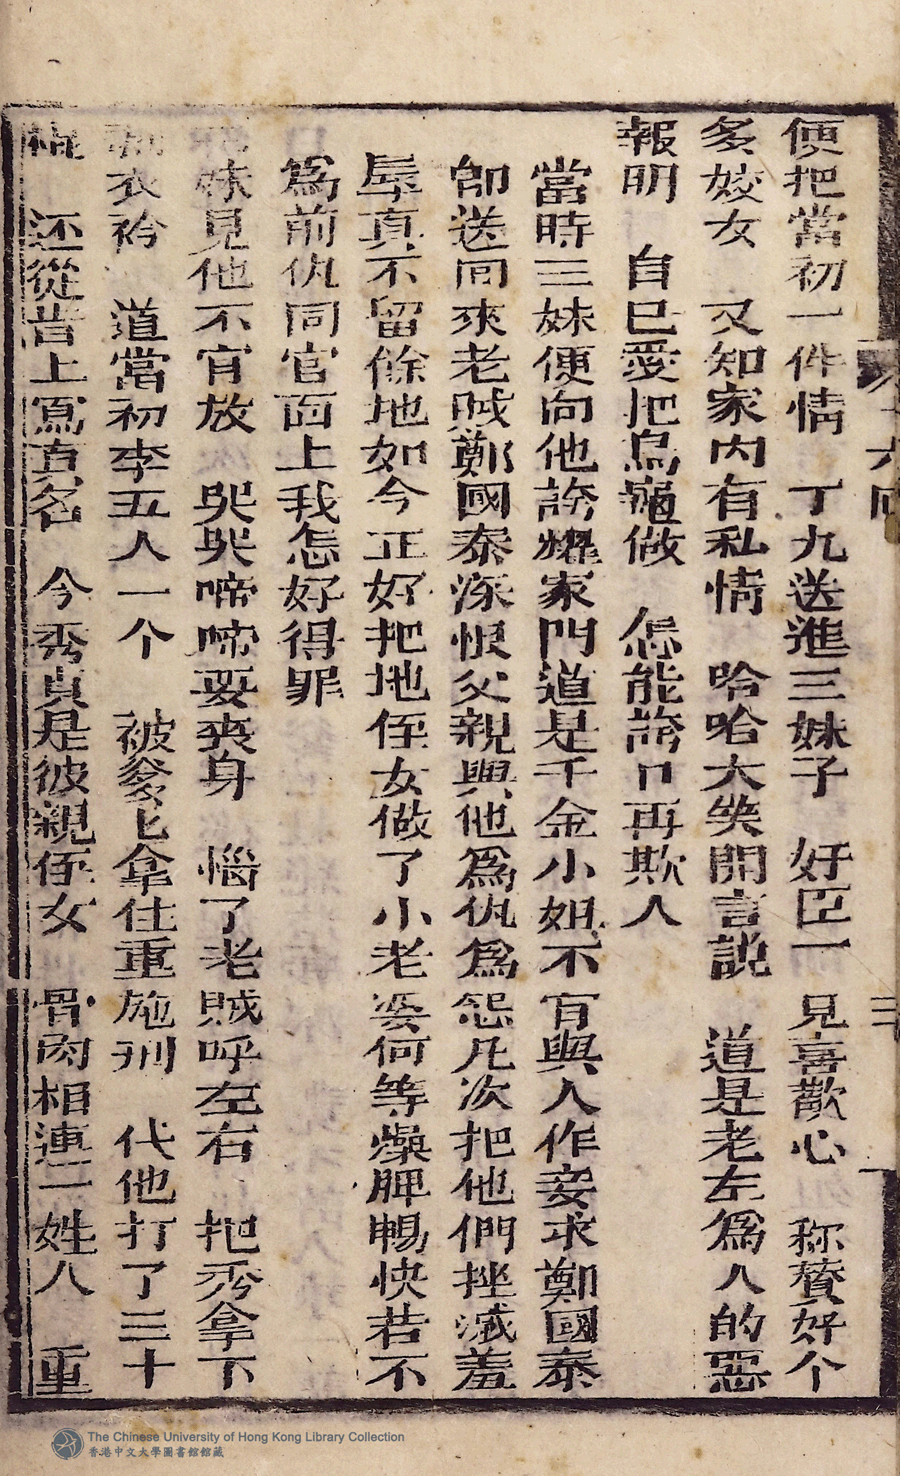 便把當初一件情　丁九送進三妹子　好臣一見喜歡心　称賛好个
多姣女　又知家內有私情　哈哈大笑開言說　道是老左爲人的惡
報明　自已愛把烏龜做　怎能誇口再欺人
當時三妹便向他誇耀家門道是千金小姐不肯與人作妾求鄭國泰
卽送囬來老賊鄭國泰深恨父親與他爲仇爲怨几次把他們挫滅羞
辱真不留餘地如今正好把他侄女做了小老婆何等燥脾暢快若不
爲前仇同官面上我怎好得罪
妹見他不肯放　哭哭啼啼要喪身　惱了老賊呼左右　把秀拿下
衣衿　道當初李五人一个　被爹匕拿住重施刑　代他打了三十
棍　还從背上寫真名　今秀真是彼親侄女　骨肉相連一姓人　重
六囬
三
The Chinese University of Hong Kong Library Collection
香港中文大學圖書館館藏